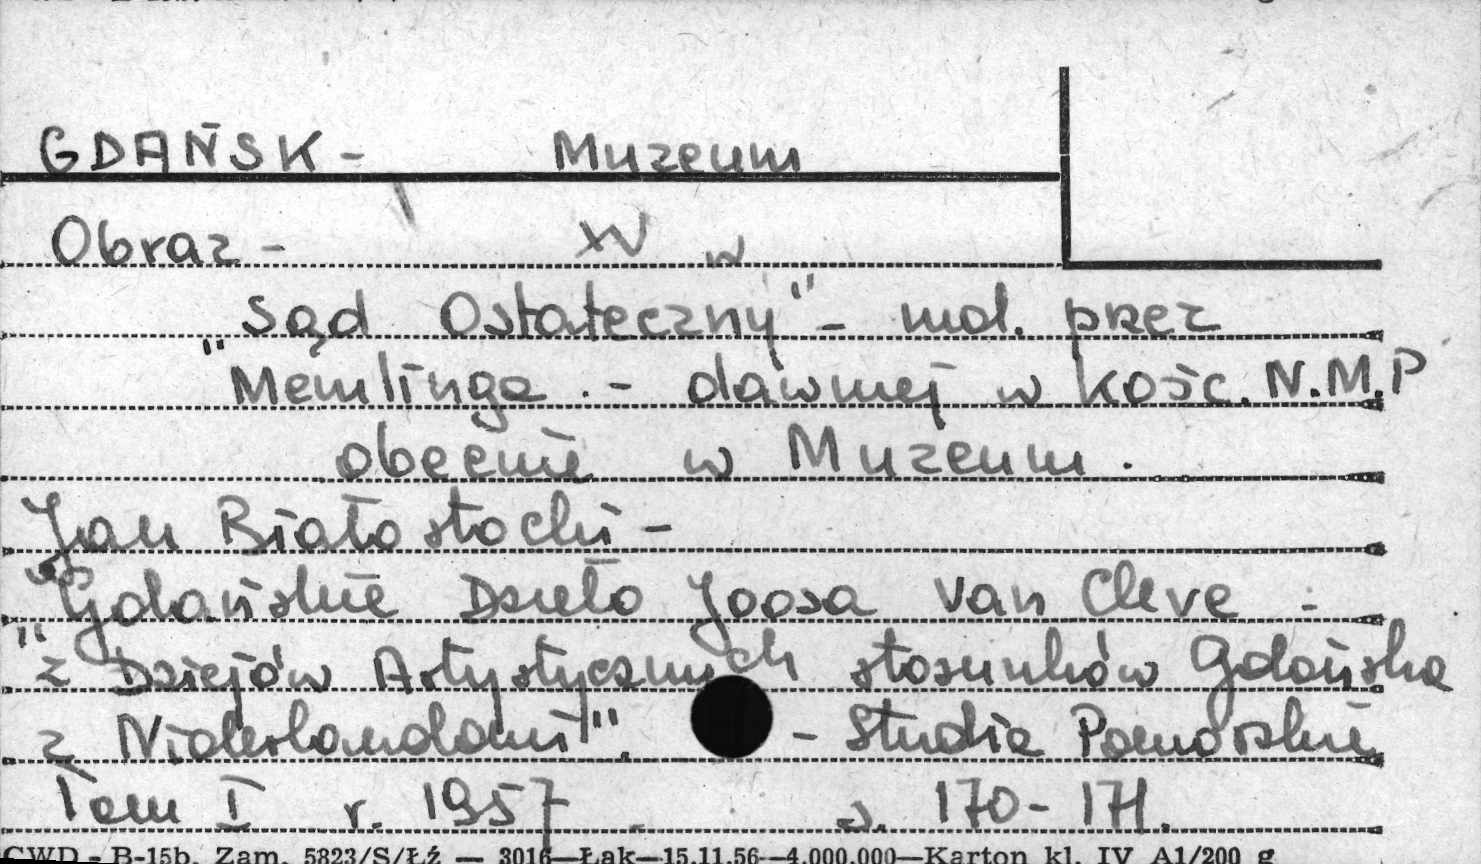 GDAŃSK - Muzeum
Obraz - XV w
"Sąd Ostateczny" - mal. przez
Memlinga. - dawniej w kośc. N.M.P
obecnie w Muzeum.
Jan Białostocki -
"Gdańskie Dzieło Joosa van Cleve -
z Dziejów Artystycznych stosunków Gdańska
z Niderlandami". - Studia Pomorskie
Tom I r. 1957. s. 170-171.
CWD - B-15b. Zam. 5823/S/Łź — 3016—Łąk—15.11.56—4.000.000—Karton kl. IV A1/200 g